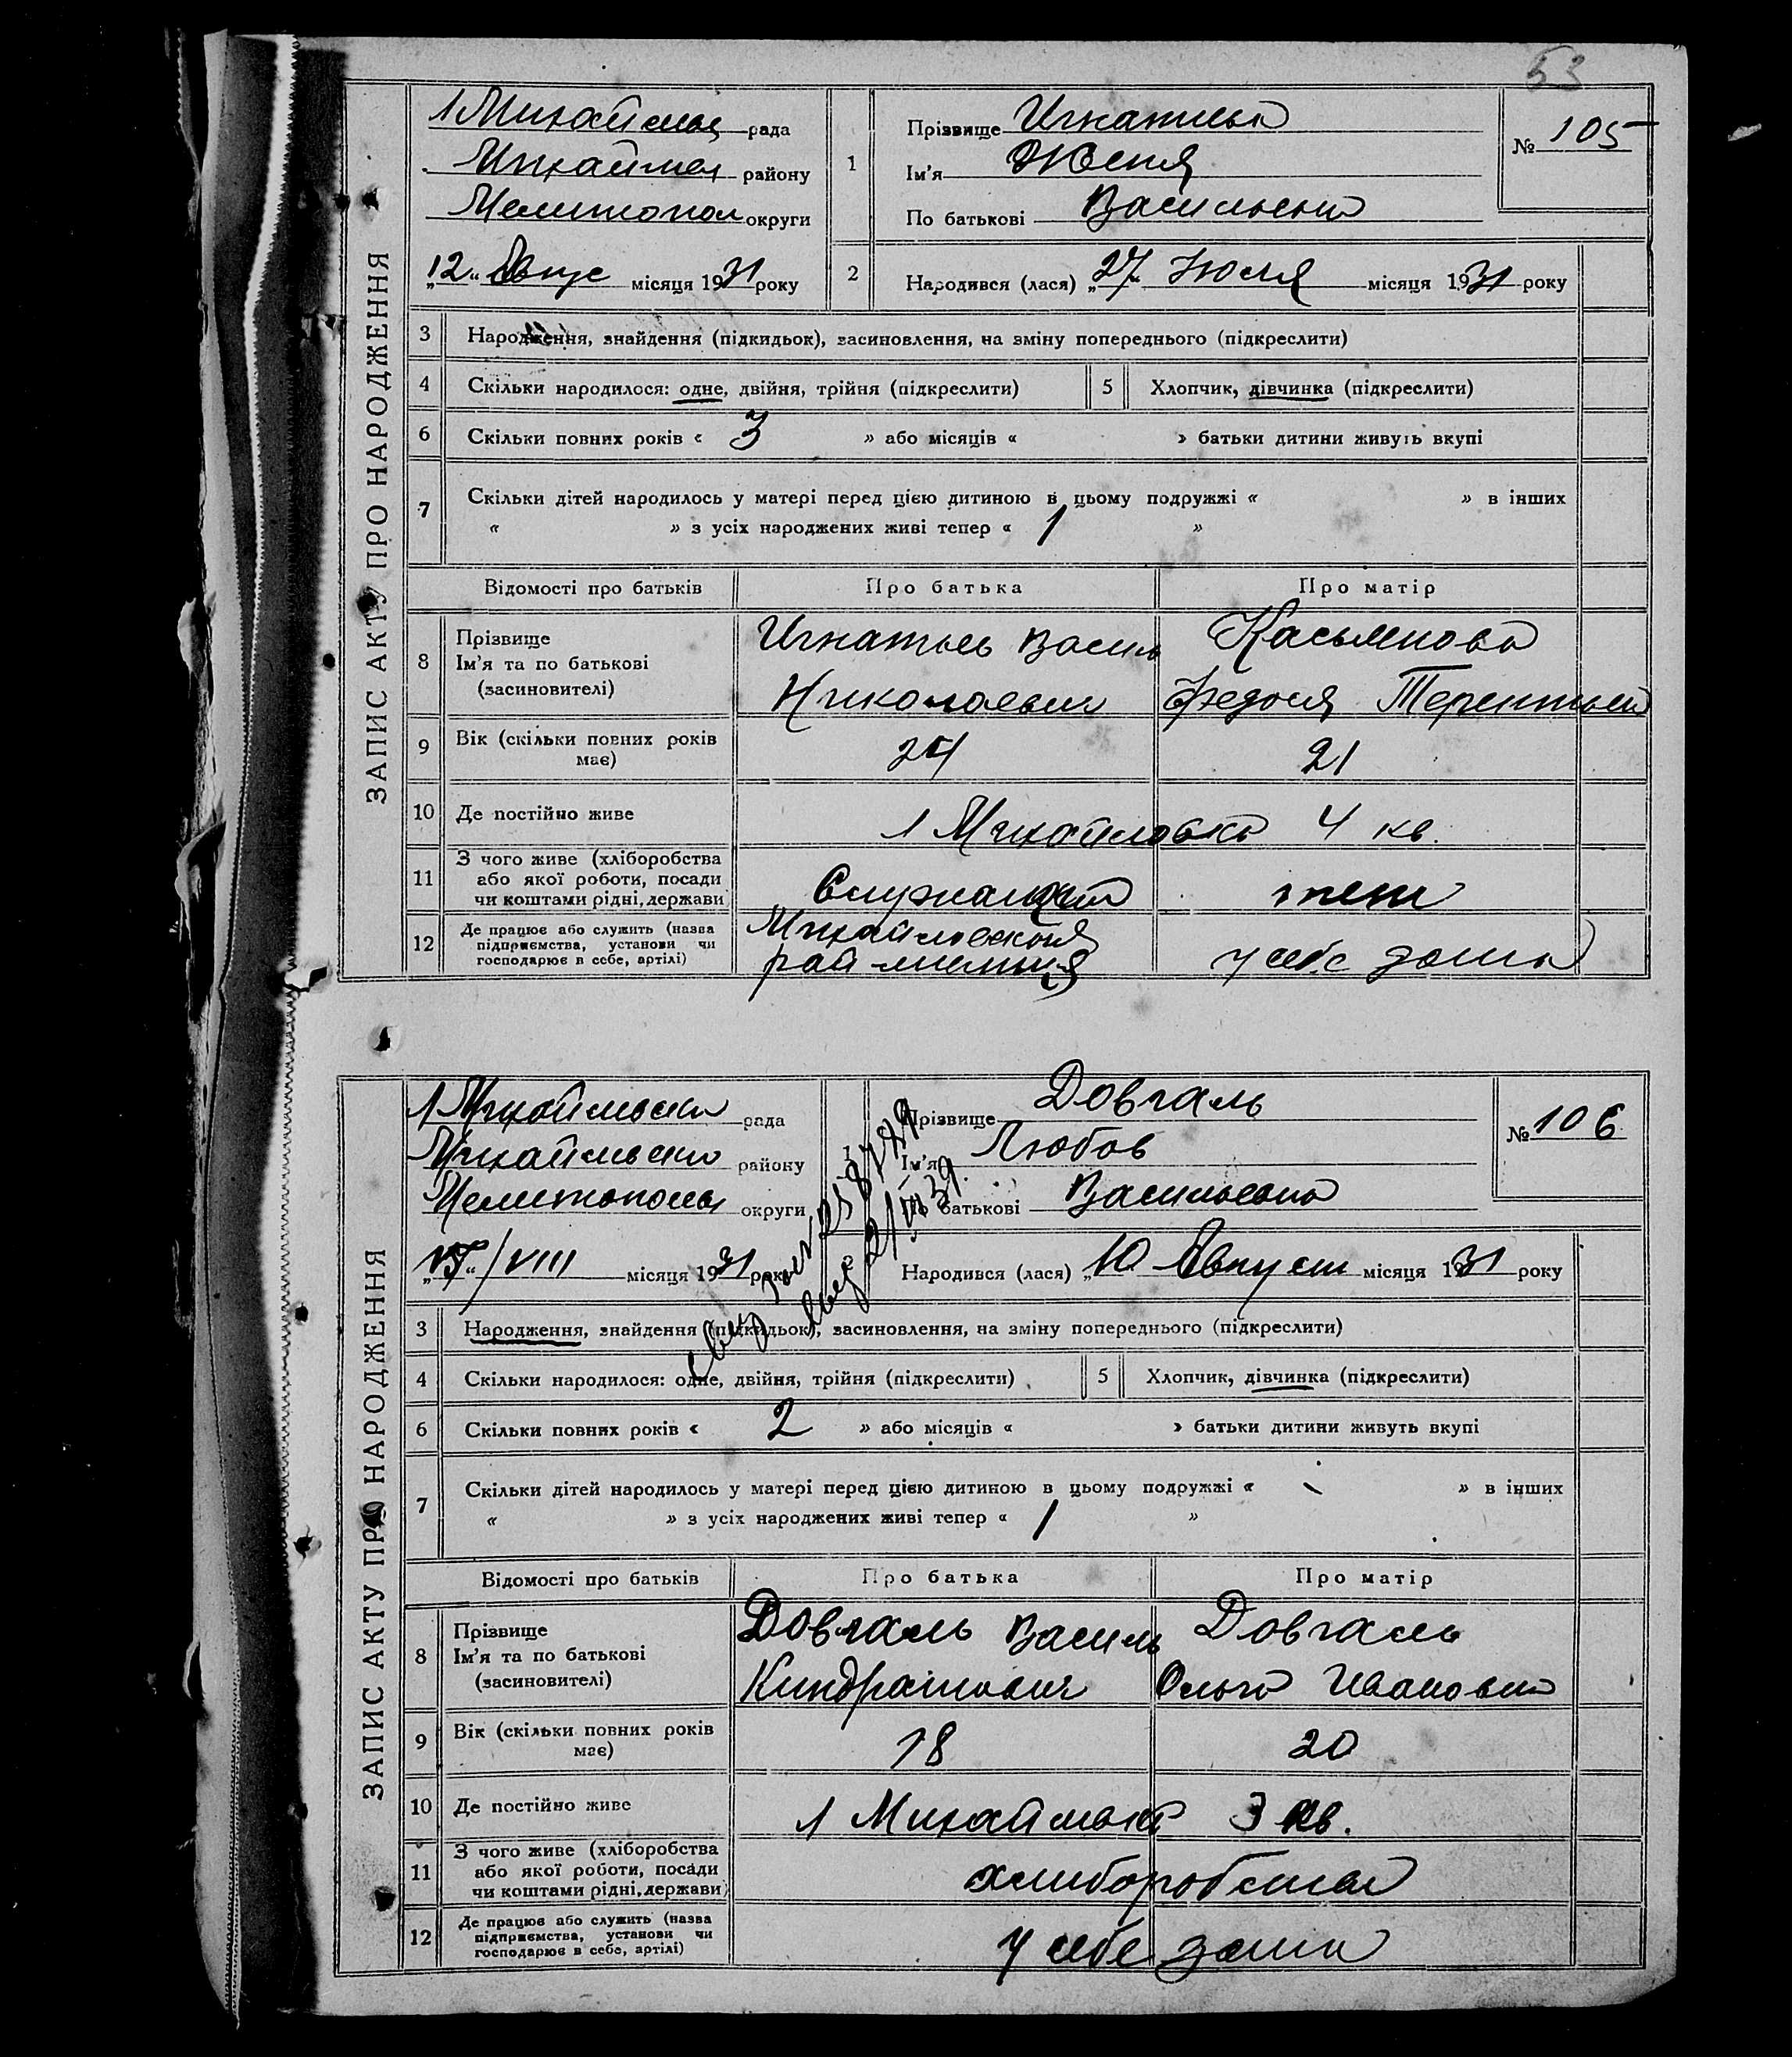 53
ЗАПИС АКТУ ПРО НАРОДЖЕННЯ
рада
району
Мелитопол округи
„12“ Авгус місяця 1931 року
1 Прізвище
Ім'я Женя
По батькові Васильевна
№ 105
2 Народився (лася) „27“ Июля місяця 1931 року
3 Народження, знайдення (підкидьок), засиновлення, на зміну попереднього (підкреслити)
4 Скільки народилося: одне, двійня, трійня (підкреслити) 5 Хлопчик, дівчинка (підкреслити)
6 Скільки повних років « 3 » або місяців « » батьки дитини живуть вкупі
7 Скільки дітей народилось у матері перед цією дитиною в цьому подружжі « » в інших
« » з усіх народжених живі тепер « 1 »
Відомості про батьків Про батька Про матір
8 Прізвище
Ім'я та по батькові
(засновителі)
Василь
Николаевич
Касьянова
Федосия
9 Вік (скільки повних років має) 24 21
10 Де постійно живе 1 Михайловка 4 кв.
11 З чого живе (хліборобства
або якої роботи, посади
чи коштами рідні, держави
12 Де працює або служить (назва
підприємства, установи чи
господарює в себе, артілі)
Михайловская
рай милиция
у себе дома
ЗАПИС АКТУ ПРО НАРОДЖЕННЯ
рада
району
округи
/VIII місяця 1931 року
1 Прізвище Довгаль
Ім'я Любов
По батькові Васильевна
№ 106
Народився (лася) „10 Август місяця 1931 року
3 Народження, знайдення (підкидьок), засиновлення, на зміну попереднього (підкреслити)
4 Скільки народилося: одне, двійня, трійня (підкреслити) 5 Хлопчик, дівчинка (підкреслити)
6 Скільки повних років « 2 » або місяців « » батьки дитини живуть вкупі
7 Скільки дітей народилось у матері перед цією дитиною в цьому подружжі « » в інших
« » з усіх народжених живі тепер « 1 »
Відомості про батьків Про батька Про матір
8 Прізвище
Ім'я та по батькові
(засиновителі)
Довгаль Василь
Киндратович
Довгаль
Ольга Ивановна
9 Вік (скільки повних років має) 18 20
10 Де постійно живе 3 кв.
11 З чого живе (хліборобства
або якої роботи, посади
чи коштами рідні, держави)
12 Де працює або служить (назва
підприємства, установи чи
господарює в себе, артілі)
у себе дома